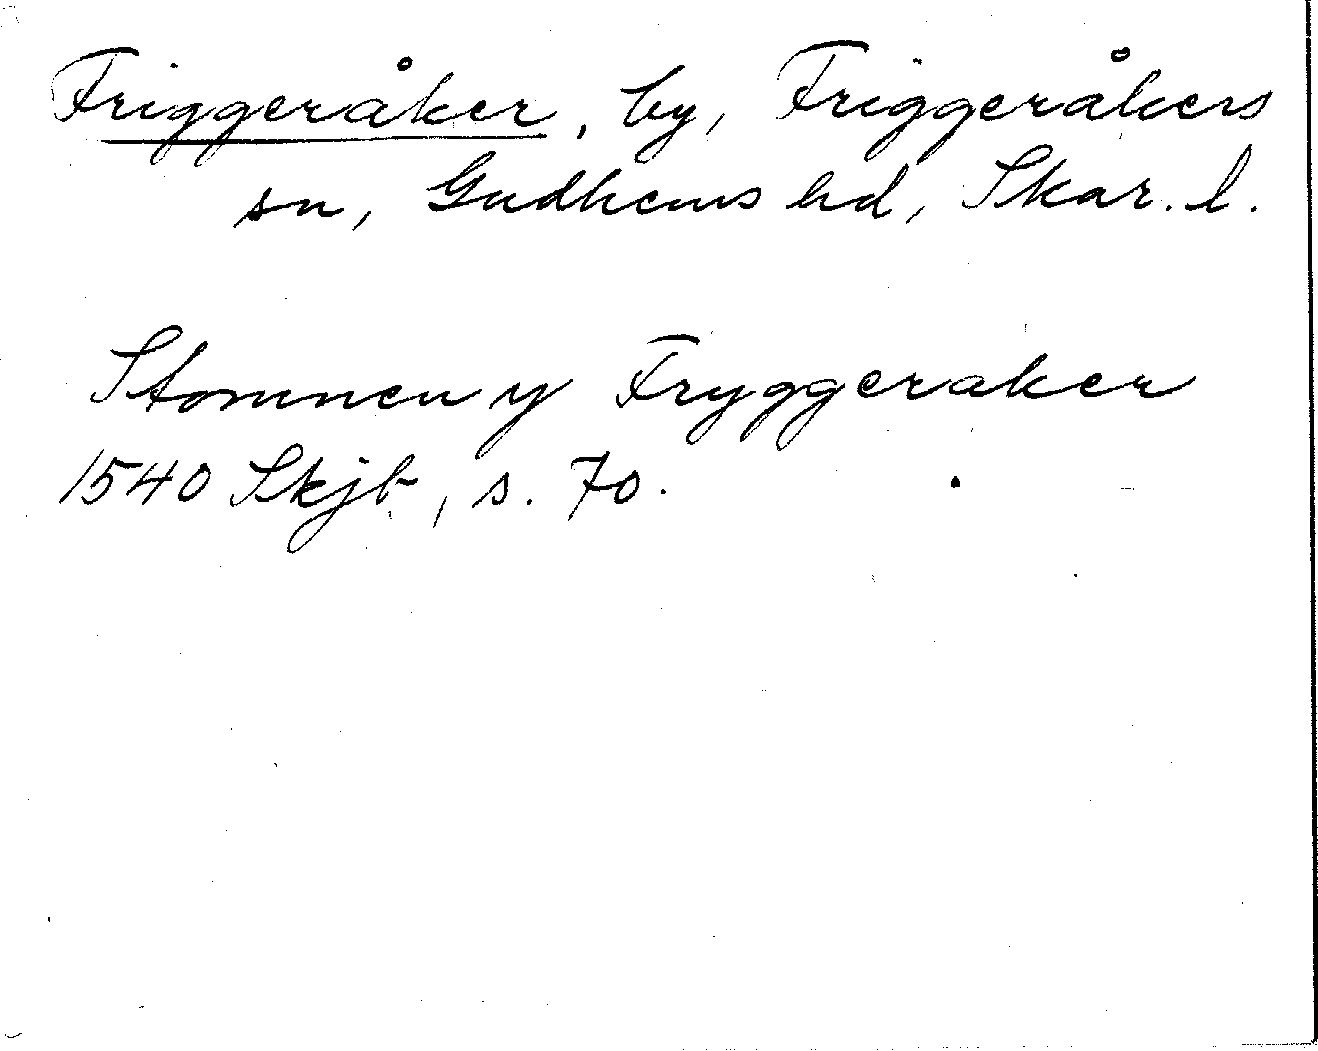 Friggeråker, by, Friggeråkers
sn, Gudhems hd, Skar. l.
Stommen y Fryggeraker
1540 Skjb, s. 70.